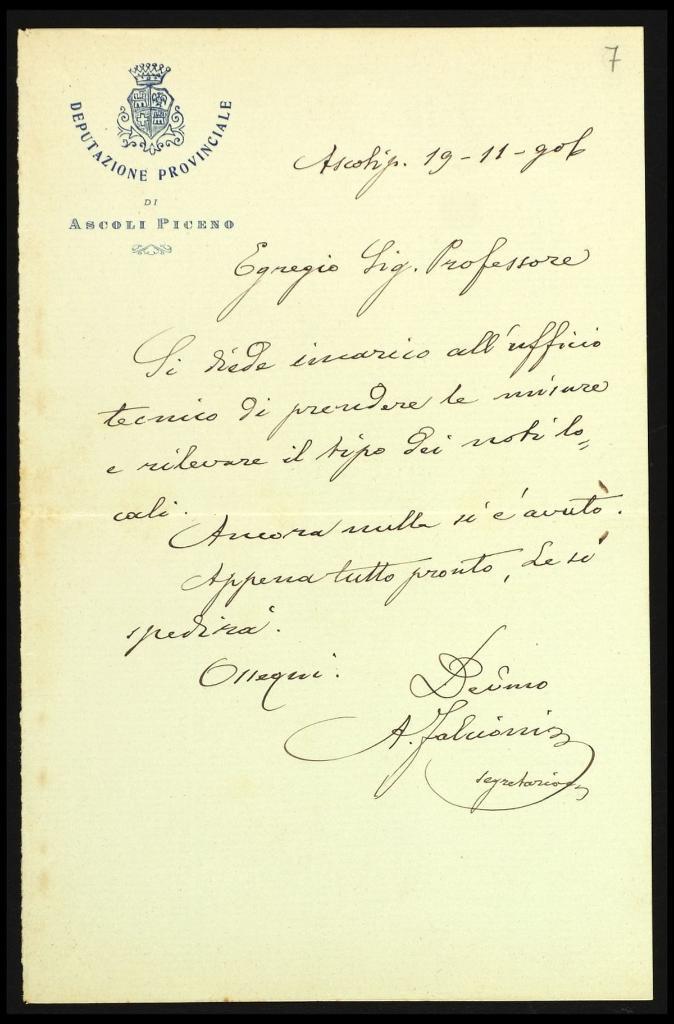 7
DEPUTAZIONE PROVINCIALE
DI
ASCOLI PICENO
Ascoli p. 19-11-906
Egregio Sig. Professore
Si diede incarico all'ufficio
tecnico di prendere le misure
e rilevare il tipo dei noti lo=
cali.
Ancora nulla si è avuto.
Appena tutto pronto, Le si
spedirà.
Ossequi.
Devmo
A. Falcioni
segretario